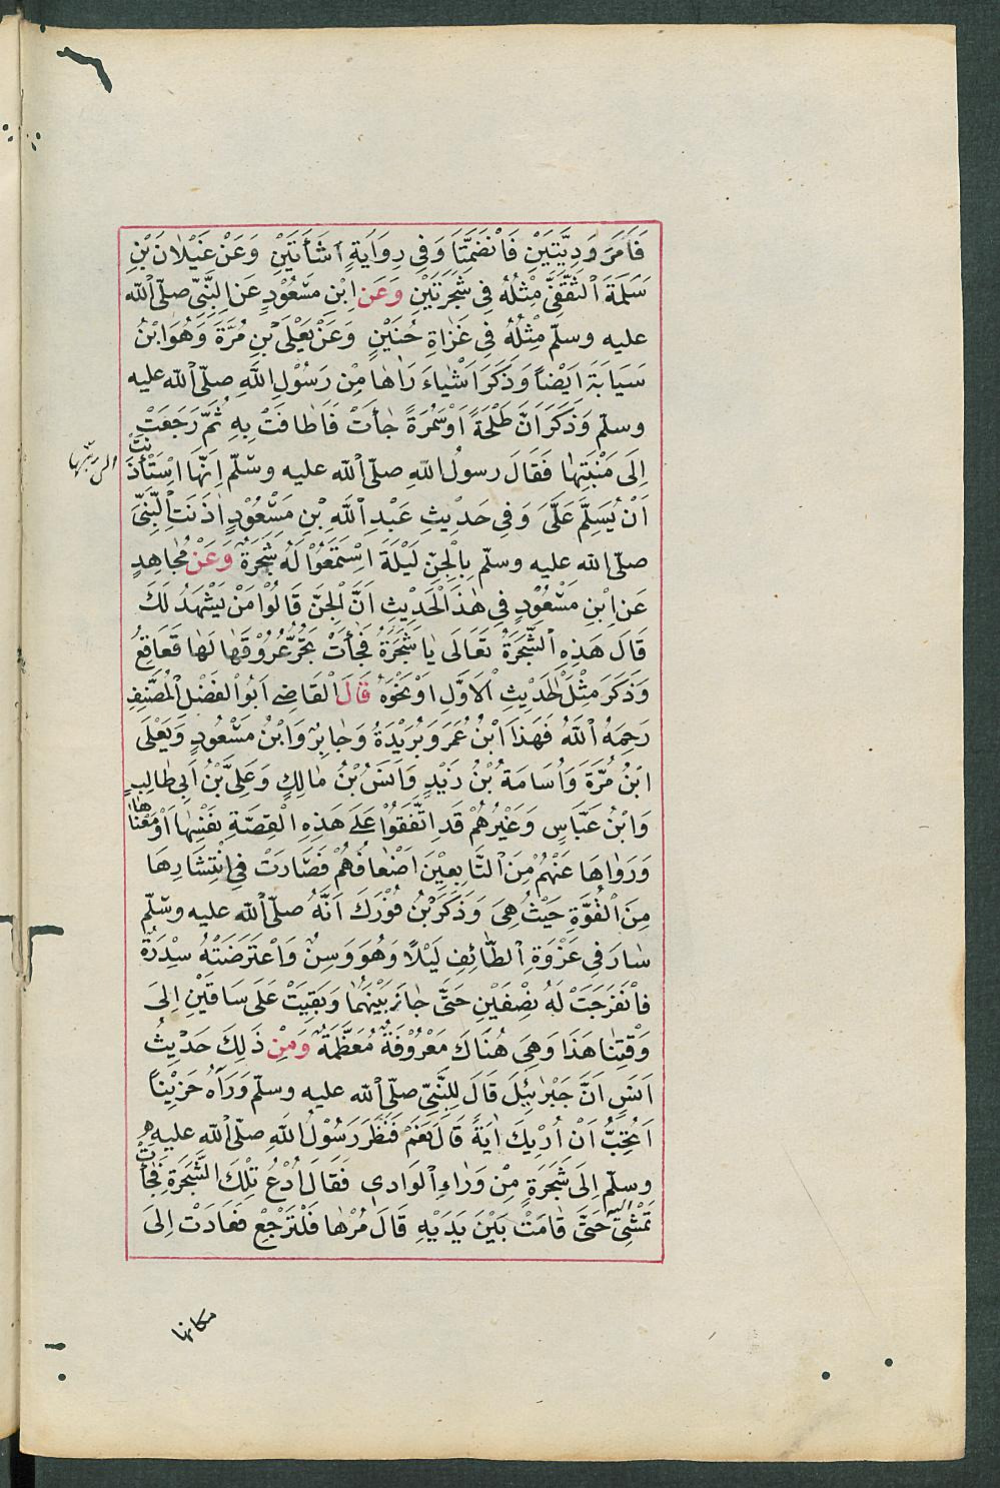 فَاَمَرَ وَدِيَّتَيْنِ فَانْضَمَّتَا وَفِي رِوَايَةٍ اَشَأَتَيْنِ وَعَنْ غَيْلَانَ بْنِ
سَلَمَةَ الثَّقَفِيِّ مِثْلُهُ فِي شَجَرَتَيْنِ وَعَنِ ابْنِ مَسْعُودٍ عَنِ النَّبِيِّ صلّى الله
عليه وسلّم مِثْلُهُ فِي غَزَاةِ حُنَيْنٍ وَعَنْ يَعْلَى بْنِ مُرَّةَ وَهُوَ ابْنُ
سَيَابَةَ اَيْضًا وَذَكَرَ اَشْيَاءَ رَاٰهَا مِنْ رَسُوْلِ اللّٰهِ صلّى الله عليه
وسلّم وَذَكَرَ اَنَّ طَلْحَةً اَوْ سَمُرَةً جَاأَتْ فَاَطَافَتْ بِهِ ثُمَّ رَجَعَتْ
اِلَى مَنْبَتِهَا فَقَالَ رسولُ اللهِ صلّى الله عليه وسلّم اِنَّهَا اسْتَأْذَنَتْ
اَنْ يُسَلِّمَ عَلَيَّ وَفِي حَدِيْثِ عَبْدِ اللّٰهِ بْنِ مَسْعُوْدٍ اٰذَنَتِ النَّبِيَّ
صلّى الله عليه وسلّم بِالْجِنِّ لَيْلَةَ اسْتَمَعُوْا لَهُ شَجَرَةٌ وَعَنْ مُجَاهِدٍ
عَنِ ابْنِ مَسْعُوْدٍ فِي هٰذَا الْحَدِيْثِ اَنَّ الْجِنَّ قَالُوْا مَنْ يَشْهَدُ لَكَ
قَالَ هَذِهِ الشَّجَرَةُ تَعَالَى يَا شَجَرَةُ فَجَاأَتْ تَجُرُّ عُرُوْقَهَا لَهَا قَعَاقِعُ
وَذَكَرَ مِثْلَ الْحَدِيْثِ الْاَوَّلِ اَوْ نَحْوَهُ قَالَ الْقَاضِى اَبُو الْفَضْلِ الْمُصَنِّفُ
رَحِمَهُ اللّٰهُ فَهَذَا ابْنُ عُمَرَ وَبُرَيْدَةُ وَجَابِرٌ وَابْنُ مَسْعُودٍ وَيَعْلَى
ابْنُ مُرَّةَ وَاُسَامَةُ بْنُ زَيْدٍ وَاَنَسُ بْنُ مَالِكٍ وَعَلِيُّ بْنُ اَبِي طَالِبٍ
وَابْنُ عَبَّاسٍ وَغَيْرُهُمْ قَدِ اتَّفَقُوْا عَلَى هَذِهِ الْقِصَّةِ نَفْسِهَا اَوْ مَعْنَاهَا
وَرَوَاهَا عَنْهُمْ مِنَ التَّابِعِيْنَ اَضْعَافُهُمْ فَصَارَتْ فِي انْتِشَارِهَا
مِنَ الْقُوَّةِ حَيْثُ هِيَ وَذَكَرَ بْنُ فُوْرَكَ اَنَّهُ صلّى الله عليه وسلّم
سَارَ فِي غَزْوَةِ الطَّائِفِ لَيْلًا وَهُوَ وَسِنٌ وَاعْتَرَضَتْهُ سِدْرَةٌ
فَانْفَرَجَتْ لَهُ نِصْفَيْنِ حَتَّى جَازَ بَيْنَهُمَا وَبَقِيَتْ عَلَى سَاقَيْنِ اِلَى
وَقْتِنَا هَذَا وَهِيَ هُنَاكَ مَعْرُوْفَةٌ مُعَظَّمَةٌ وَمِنْ ذَلِكَ حَدِيْثُ
اَنَسٍ اَنَّ جَبْرَئِيْلَ قَالَ لِلنَّبِيِّ صلّى الله عليه وسلّم وَرَاٰهُ حَزِيْنًا
اَتُحِبُّ اَنْ اُرِيَكَ اٰيَةً قَالَ نَعَمْ فَنَظَرَ رَسُوْلُ اللّٰهِ صلّى الله عليه
وسلّم اِلَى شَجَرَةٍ مِنْ وَرَاءِ الْوَادِى فَقَالَ اُدْعُ تِلْكَ الشَّجَرَةَ فَجَاأَتْ
تَمْشِي حَتَّى قَامَتْ بَيْنَ يَدَيْهِ قَالَ مُرْهَا فَلْتَرْجِعْ فَعَادَتْ اِلَى
مكانها